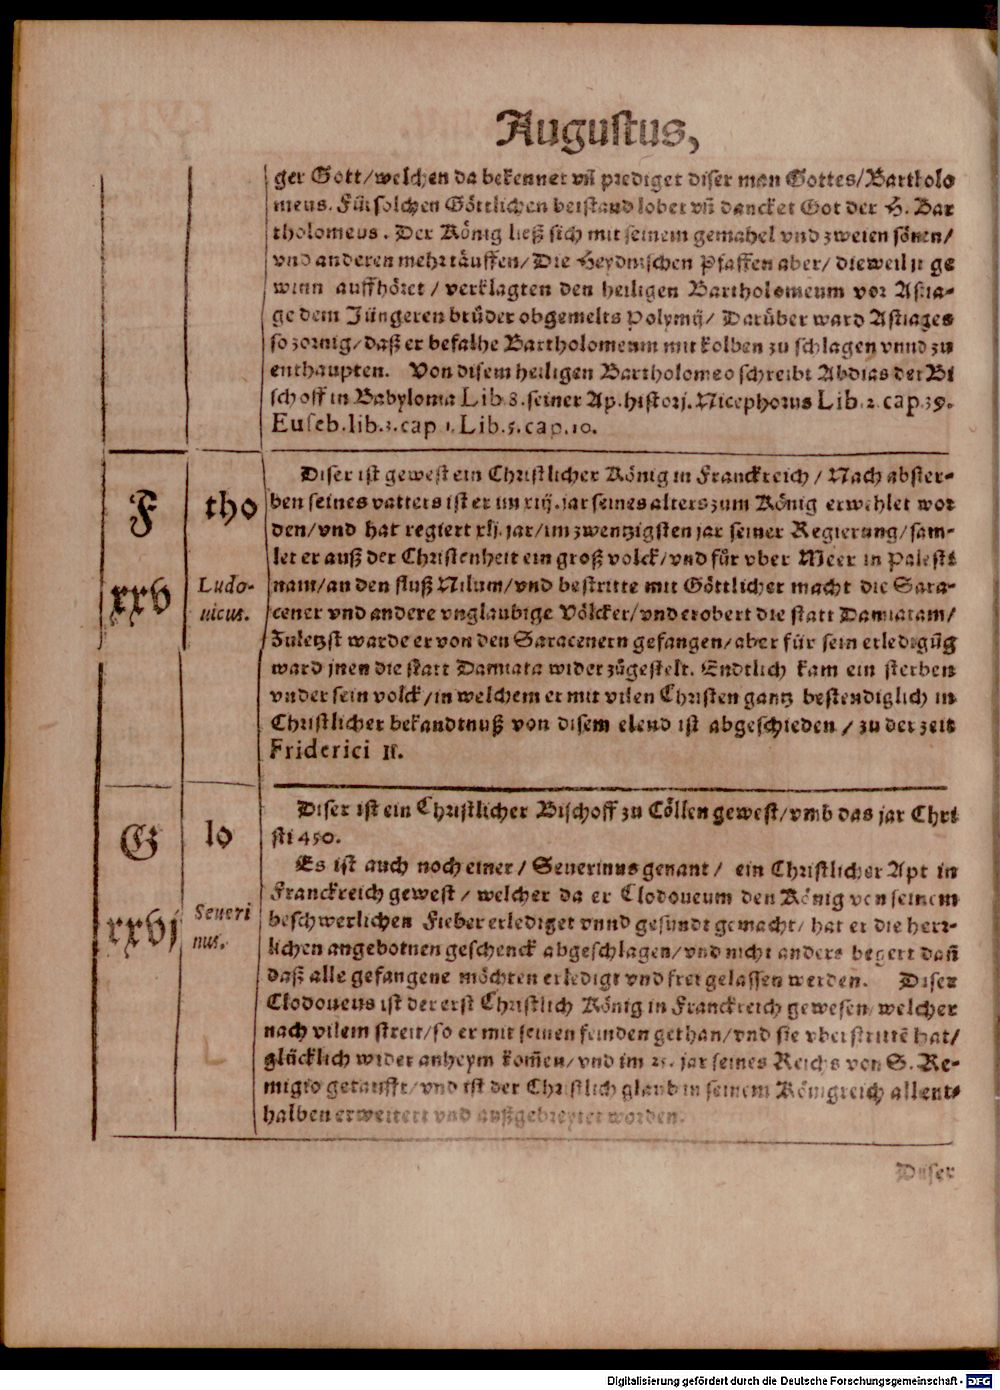 Augustus,
ger Gott/welchen da bekennet vñ prediget diser man Gottes/Bartholo
meus. Für solchen Göttlichen beistand lobet vñ dancket Got der H. Bar
tholomeus. Der König ließ sich mit seinem gemahel vnd zweien sönen/
vnd anderen mehr täuffen/Die Heydnischen Pfaffen aber/dieweil jr ge
winn auffhöret/verklagten den heiligen Bartholomeum vor Astia-
ge dem Jüngeren brůder obgemelts Polymij/Darůber ward Astiages
so zornig/daß er befalhe Bartholomeum mit kolben zu schlagen vnnd zu
enthaupten. Von disem heiligen Bartholomeo schreibt Abdias der Bi
schoff in Babylonia Lib.8.seiner Ap.histori. Nicephorus Lib.2.cap.39.
Euseb.lib.3.cap 1.Lib.5.cap.10.
F
tho
xxv
Ludo-
uicus.
Diser ist gewest ein Christlicher König in Franckreich/Nach abster-
ben seines vatters ist er im xiij.jar seines alters zum König erwehlet wor
den/vnd hat regiert xlj.jar/im zwentzigsten jar seiner Regierung/sam-
let er auß der Christenheit ein groß volck/vnd fůr vber Meer in Palesti
nam/an den fluß Nilum/vnd bestritte mit Göttlicher macht die Sara-
cener vnd andere vnglaubige Völcker/vnd erobert die statt Damiatam/
Zuletzst warde er von den Saracenern gefangen/aber für sein erledigũg
ward jnen die statt Damiata wider zůgestelt. Endtlich kam ein sterben
vnder sein volck/in welchem er mit vilen Christen gantz bestendiglich in
Christlicher bekandtnuß von disem elend ist abgeschieden/zu der zeit
Friderici II.
G
lo
xxvj
Seueri
nus.
Diser ist ein Christlicher Bischoff zu Cöllen gewest/vmb das jar Chri
sti 450.
Es ist auch noch einer/Seuerinus genant/ein Christlicher Apt in
Franckreich gewest/welcher da er Clodoueum den König von seinem
beschwerlichen Fieber erlediget vnnd gesundt gemacht/hat er die herr-
lichen angebotnen geschenck abgeschlagen/vnd nicht anders begert dañ
daß alle gefangene möchten erledigt vnd frei gelassen werden. Diser
Clodoueus ist der erst Christlich König in Franckreich gewesen/welcher
nach vilem streit/so er mit seinen feinden gethan/vnd sie vberstrittẽ hat/
glücklich wider anheym kom̃en/vnd im 25.jar seines Reichs von S. Re-
migio getaufft/vnd ist der Christlich glaub in seinem Königreich allent-
halben erweitert vnd außgebreytet worden.
Diser
Digitalisierung gefördert durch die Deutsche Forschungsgemeinschaft - DFG